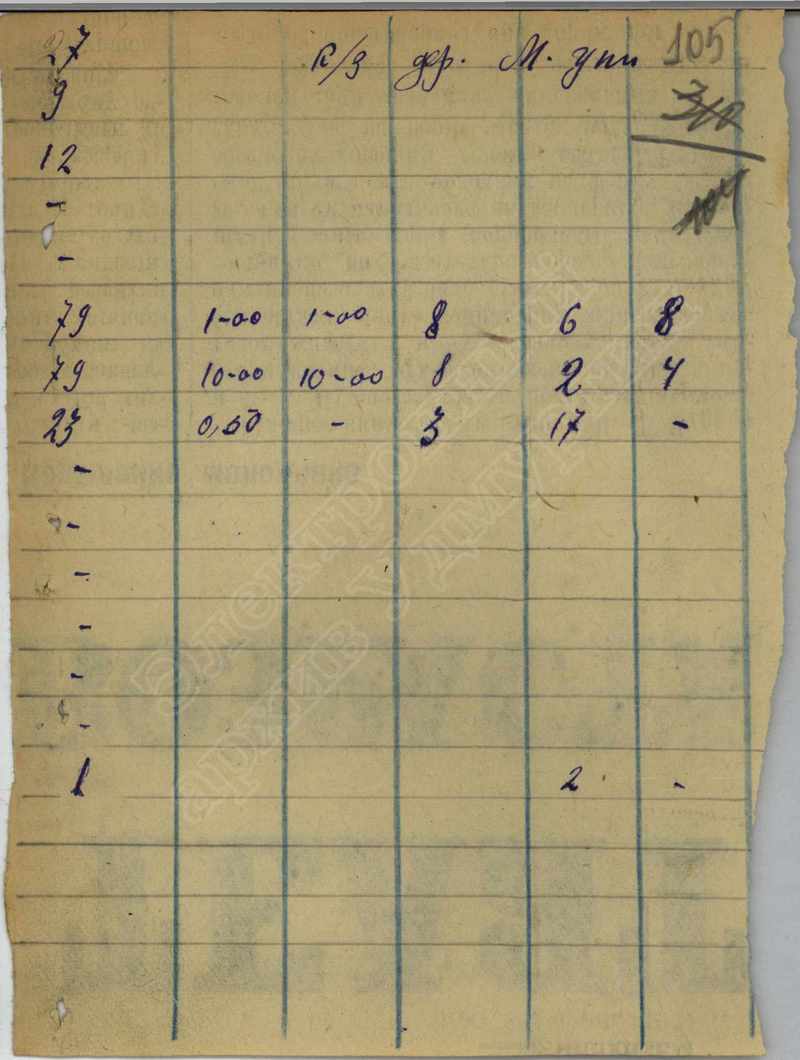 27 к/з дер. М. Упи 105
9
12
-
-
79 1-00 1-00 8 6 8
79 10-00 10-00 8 2 4
23 0,50 - 3 17 -
-
-
-
-
-
-
1 2 -
Электронный
архив Удмуртии